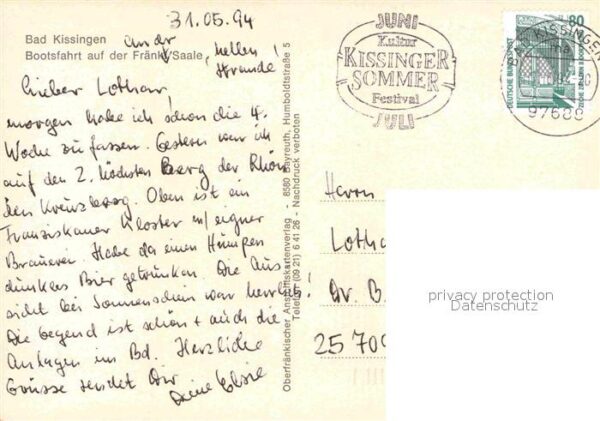 31.05.94
Bad Kissingen
Bootsfahrt auf der Fränk. Saale
Lieber Lothar!
morgen habe ich schon die 4.
Woche zu fassen. Gestern war ich
auf den 2. höchsten Berg der Rhön
den Kreuzberg. Oben ist ein
Franziskaner Kloster m/ eigner
Brauerei. Habe da einen Humpen
dunkles Bier getrunken. Die Aus
sicht bei Sonnenschein war herrlich!
Die Gegend ist schön + auch die
Anlagen im Bd. Herzliche
Grüsse sendet Dir
Deine Elsie
Oberfränkischer Ansichtskartenverlag - 8580 Bayreuth, Humboldtstraße 5
Telefon (09 21) 6 41 26 - Nachdruck verboten
JUNI
Kultur
KISSINGER
SOMMER
Festival
JULI
80
DEUTSCHE BUNDESPOST
BAD KISSINGEN
ma
97688
Herrn
Lotha
Dr. B
25709
privacy protection
Datenschutz